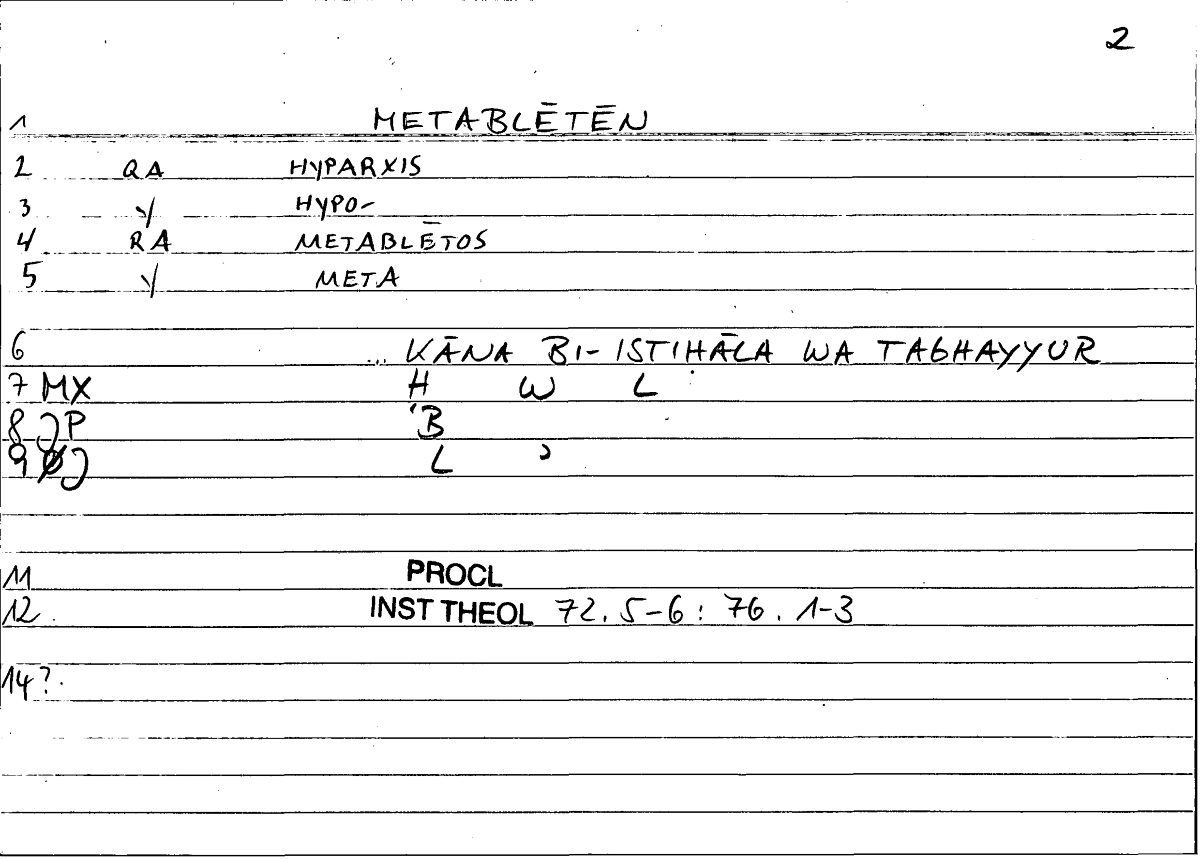 2
1 METABLĒTĒN
2 QA HYPARXIS
3 Y HYPO-
4 RA METABLĒTOS
5 Y META
6 ... KĀNA BI- ISTIḤĀLA WA TAGHAYYUR
7 MX Ḥ W L
8 JP ʿB
9 ØJ L ʾ
11 PROCL
12 INST THEOL 72. 5-6: 76. 1-3
14?